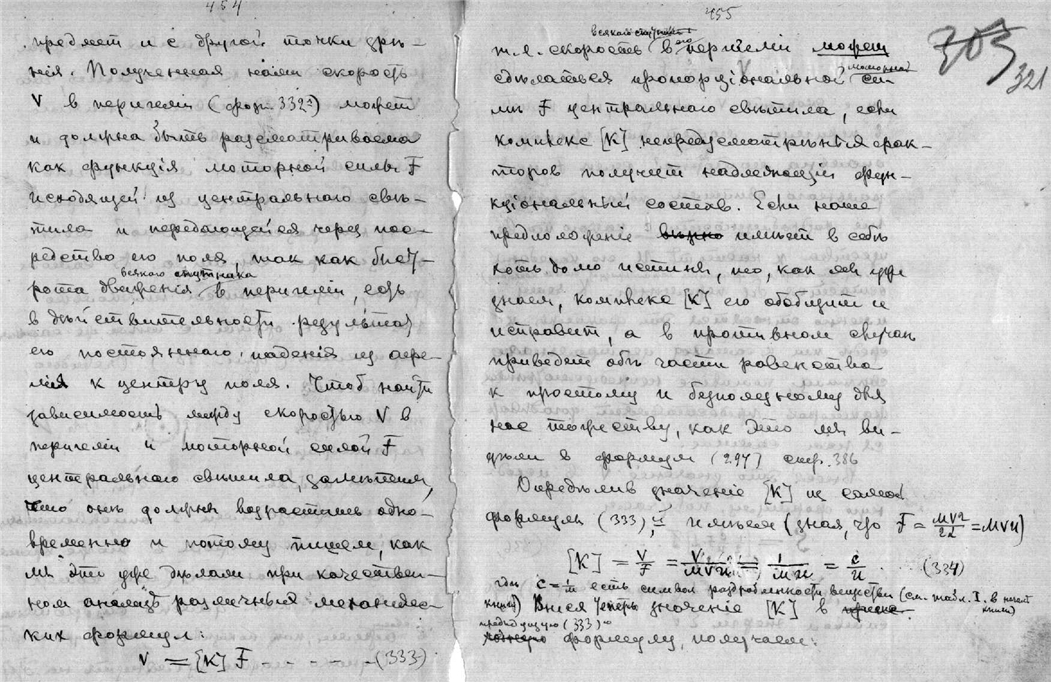 454
предмет и с другой точки зрѣ-
нія. Полученная нами скорость
V в перигеліи (фор. 332) может
и должна быть разсматриваема
как функція моторной силы F
исходящей из центральнаго свѣ-
тила и передающейся через пос-
редство его поля, так как быст-
всякаго спутника
рота движенія в перигеліи, есть
в дѣйствительности, результат
его постояннаго паденія из афе-
лія к центру поля. Чтоб найти
зависимость между скоростью V в
перигеліи и моторной силой F
центральнаго свѣтила, замѣтим,
что онѣ должны возрастать одно-
временно и потому пишем, как
мы это уже дѣлали при качествен-
ном анализѣ различных механичес-
ких формул:
V = [K] F - - - - - (333)
455
всякаго спутника
т.е. скорость в его перигеліи может
сдѣлаться пропорціональной моторной си-
лы F центральнаго свѣтила, если
комплекс [K] непредусмотрѣнных фак-
торов получит надлежащій фун-
кціональный состав. Если наше
предположеніе вѣрно имѣет в себѣ
хоть долю истины, то, как мы уже
знаем, комплекс [K] его обобщит и
исправит, а в противном случаѣ
приведет обѣ части равенства
к простому и безполезному для
нас тожеству, как это мы ви-
дѣли в формулѣ (297) стр. 386
Опредѣлив значеніе [K] из самой
формулы (333), имѣем (зная, что F = MV²/2a = MVu)
[K] = V/F = V/MVu = 1/Mu = c/u (334)
гдѣ c = 1/M есть символ разъ­емлемости вещества (см. табл. I. в началѣ
книги) Внеся теперь значеніе [K] в
предыдущую (333)-ю
формулу, получаем:
305
321